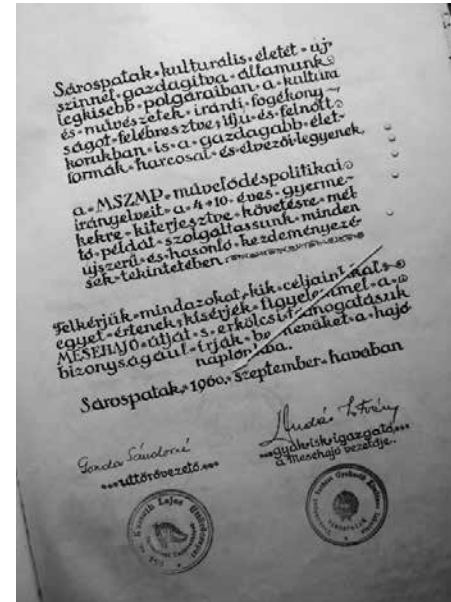 Sárospatak kulturális életét új
színnel gazdagítva államunk
legkisebb polgáraiban a kultúra
és művészetek iránti fogékony-
ságot felébresztve, ifju és felnőtt
korukban is a gazdagabb élet-
formák harcosai és élvezői legyenek.
a MSZMP művelődéspolitikai
irányelveit a 4-10 éves gyerme-
kekre kiterjesztve követésre mél
tó példát szolgáltassunk minden
ujszerű és hasonló kezdeményezé-
sek tekintetében.
Felkérjük mindazokat, kik céljainkkal
egyet értenek, kísérjék figyelemmel a
MESEHAJÓ útját s erkölcsi támogatásuk
bizonyságául írják be nevüket a hajó
naplójába.
Sárospatak, 1960. szeptember havában
Gonda Sándorné
úttörővezető
András István
gyak.isk.igazgató
a Mesehajó vezetője.
Kossuth Lajos